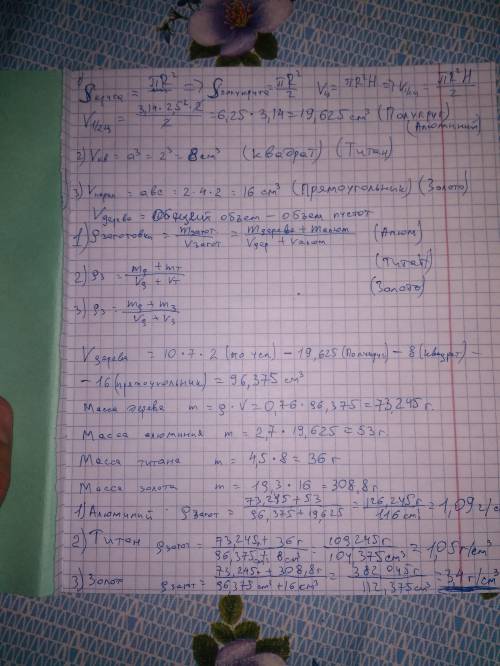 S круга = πR² => S полукруга = πR²/2 Vц = πR²H => V½ц = πR²H/2
V1/2ц = 3,14 · 2,5² · 2 / 2 = 6,25 · 3,14 = 19,625 см³ (Полукруг)
(Алюминий)
2) Vкв = a³ = 2³ = 8 см³ (Квадрат) (Титан)
3) Vпарал = abc = 2 · 4 · 2 = 16 cm³ (Прямоугольник) (Золото)
Vдерево = Общий объем − объем пустот
1) ρзаготовки = mзагот / Vзагот = mдерева + mалюм / Vдер + Vалюм (Алюм)
(Титан)
2) ρз = mд + mт / Vд + Vт
(Золото)
3) ρз = mд + mз / Vд + Vз
Vдерева = 10 · 7 · 2 (по усл) − 19,625 (Полукруг) − 8 (квадрат) −
− 16 (прямоугольник) = 96,375 cm³
Масса дерева m = ρ · V = 0,76 · 96,375 = 73,245 г.
Масса алюминия m = 2,7 · 19,625 = 53 г.
Масса титана m = 4,5 · 8 = 36 г
Масса золота m = 19,3 · 16 = 308,8 г.
1) Алюминий ρзагот = 73,245 + 53 / 96,375 + 19,625 = 126,245 г / 116 cm³ = 1,09 г/с
2) Титан ρзагот = 73,245 + 36 г / 96,375 + 8 cm³ = 109,245 г / 104,375 cm³ = 1,05 г/cm³
3) Золот ρзагот = 73,245 г + 308,8 г / 96,375 cm³ + 16 cm³ = 382,045 г / 112,375 cm³ = 3,4 г/cm³